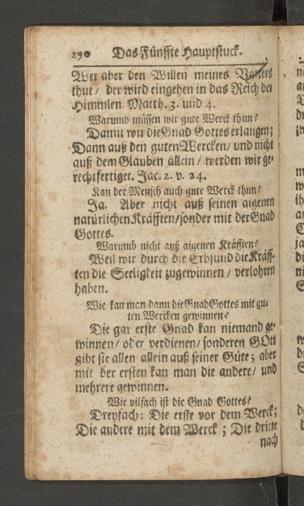 290 Das Fünffte Hauptstuck.
Wer aber den Willen meines Vatters
thut / der wird eingehen in das Reich der
Himmlen. Matth. 3. und 4.
Warumb müssen wir gute Werck thun?
Damit wir die Gnad Gottes erlangen;
Dann auß den guten Wercken / und nicht
auß dem Glauben allein / werden wir ge-
rechtfertiget. Jac. 2. v. 24.
Kan der Mensch auch gute Werck thun?
Ja. Aber nicht auß seinen aigenen
natürlichen Kräfften / sonder mit der Gnad
Gottes.
Warumb nicht auß aigenen Kräfften?
Weil wir durch die Erbsund die Kräff-
ten die Seeligkeit zugewinnen / verlohren
haben.
Wie kan man dann die Gnad Gottes mit gu-
ten Wercken gewinnen?
Die gar erste Gnad kan niemand ge-
winnen / oder verdienen / sonderen GOtt
gibt sie allen allein auß seiner Güte; aber
mit der ersten kan man die andere / und
mehrere gewinnen.
Wie vilfach ist die Gnad Gottes?
Dreyfach: Die erste vor dem Werck;
Die andere mit dem Werck; Die dritte
nach